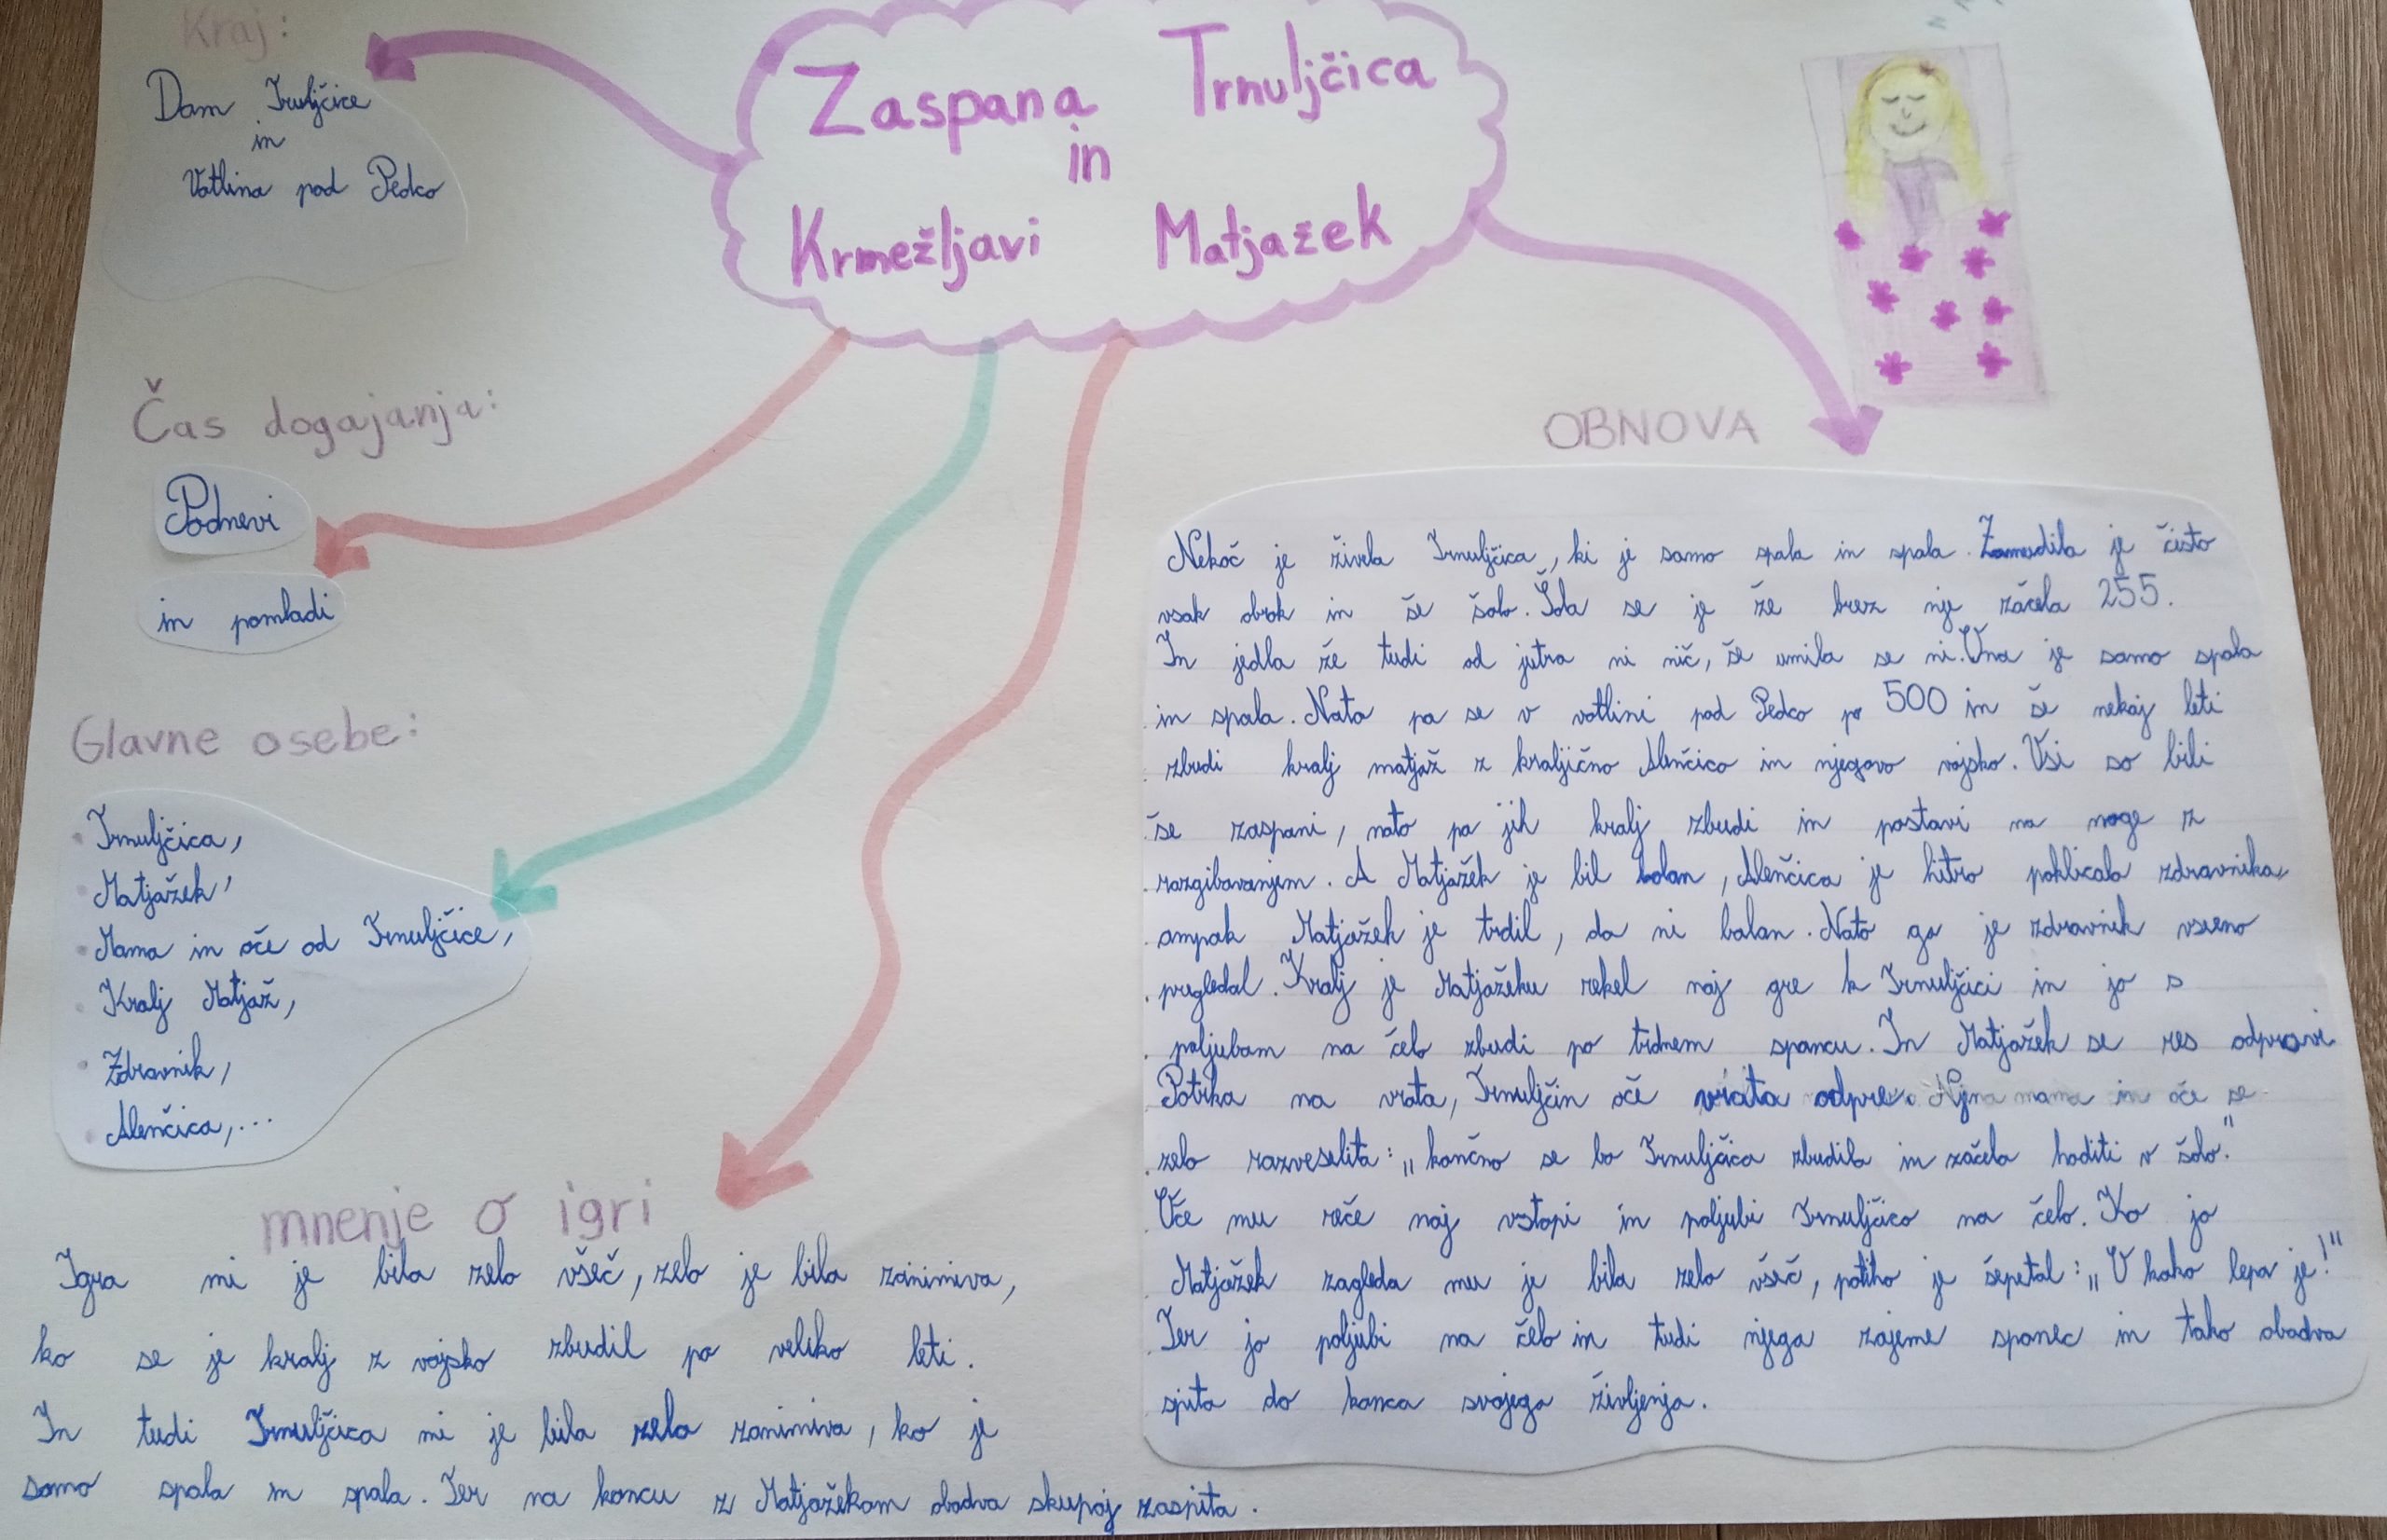 Zaspana Trnuljčica
in
Krmežljavi Matjažek
Kraj:
Dom Trnuljčice
in
Votlina pod Pedco
Čas dogajanja:
Podnevi
in pomladi
Glavne osebe:
Trnuljčica,
Matjažek,
Mama in oče od Trnuljčice,
Kralj Matjaž,
Zdravnik,
Alenčica,...
mnenje o igri
Igra mi je bila zelo všeč, zelo je bila zanimiva,
ko se je kralj z vojsko zbudil po veliko leti.
In tudi Trnuljčica mi je bila zelo zanimiva, ko je
samo spala in spala. Ter na koncu z Matjažekom obadva skupaj zaspita.
OBNOVA
Nekoč je živela Trnuljčica, ki je samo spala in spala. Zamudila je čisto
vsak obrok in še šolo. Šola se je že brez nje začela 255.
In jedla že tudi od jutra ni nič, še umila se ni. Ona je samo spala
in spala. Nato pa se v votlini pod Pedco po 500 in še nekaj leti
zbudi kralj matjaž z kraljično Alenčico in njegovo vojsko. Vsi so bili
še zaspani, nato pa jih kralj zbudi in postavi na noge z
razgibavanjem. A Matjažek je bil bolan, Alenčica je hitro poklicala zdravnika,
ampak Matjažek je trdil, da ni bolan. Nato ga je zdravnik vseeno
pregledal. Kralj je Matjažeku rekel naj gre k Trnuljčici in jo s
poljubom na čelo zbudi po trdnem spancu. In Matjažek se res odpravi.
Potrka na vrata, Trnuljčin oče vrata odpre. Njena mama in oče se
zelo razveselita: „končno se bo Trnuljčica zbudila in začela hoditi v šolo."
Oče mu reče naj vstopi in poljubi Trnuljčico na čelo. Ko jo
Matjažek zagleda mu je bila zelo všeč, potiho je šepetal: „O kako lepa je!"
Ter jo poljubi na čelo in tudi njega zajeme spanec in tako obadva
spita do konca svojega življenja.